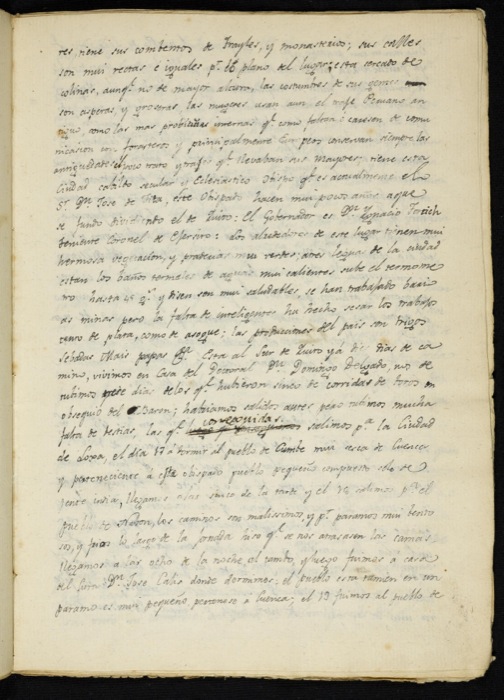 res tiene sus combentos de frayles, y monasterios; sus calles
son mui rectas e iguales pr. el plano del lugar; esta cercado de
colinas, aunq. no de mayor altura, las costumbres de sus gentes
son asperas, y groseras las mugeres usan aun el traje Peruano an
tiguo, como las mas probincias internas qe. como faltas o causen de comu
nicasion con forasteros y principalmente Eur. pero conservan siempre las
antiguedades el uso trato y traje qe. llevaban sus mayores; tiene esta
Ciudad cabildo secular y Eclesiastico Obispo qe. es actualmente el
Sr. Dn. Jose de Fita, este Obispado hacen mui pocos años aque
se fundo dividiendo el de Quito: El Gobernador es Dn. Ignacio Fortich
teniente Coronel de Egersito: Los alrededores de este lugar tienen mui
hermosa vegetacion, y praterias mui verdes; a tres leguas de la ciudad
estan los baños termales de agua mui calientes sube el termome
tro hasta 45 gs. y disen son mui saludables, se han trabajado barias
minas pero la falta de inteligentes ha hecho sesar los trabajos
tanto de plata, como de asogue: las produciones del pais son trigos
sebadas Mais papas &a. Esta al Sur de Quito y á dies dias de ca
mino, vivimos en Casa del Doctoral Dn. Domingo Delgado, nos de
tubimos dias de los qe. hubieron sinco de corridas de toros en
obsequio del Baron; habiamos salidos antes pero tubimos mucha
falta de bestias, las qe. conseguidas salimos pa. la Ciudad
de Loxa, el dia 17 á dormir al pueblo de Cumbe mui serca de Cuenca
y perteneciente á este obispado pueblo pequeño compuesto solo de
jente india, llegamos alas sinco de la tarde y el 18 salimos pa. el
pueblo de Nabon, los caminos son malissimos, y pr. paramos mui bento
sos, y frios lo largo de la jornada hiso qe. se nos atrasasen las camas
llegamos a las ocho de la noche al tambo, y luego fuimos á casa
del Cura Dn. Jose Celis donde dormimos; el pueblo esta tamien en un
paramo es mui pequeño pertenese á Cuenca; el 19 fuimos al pueblo de